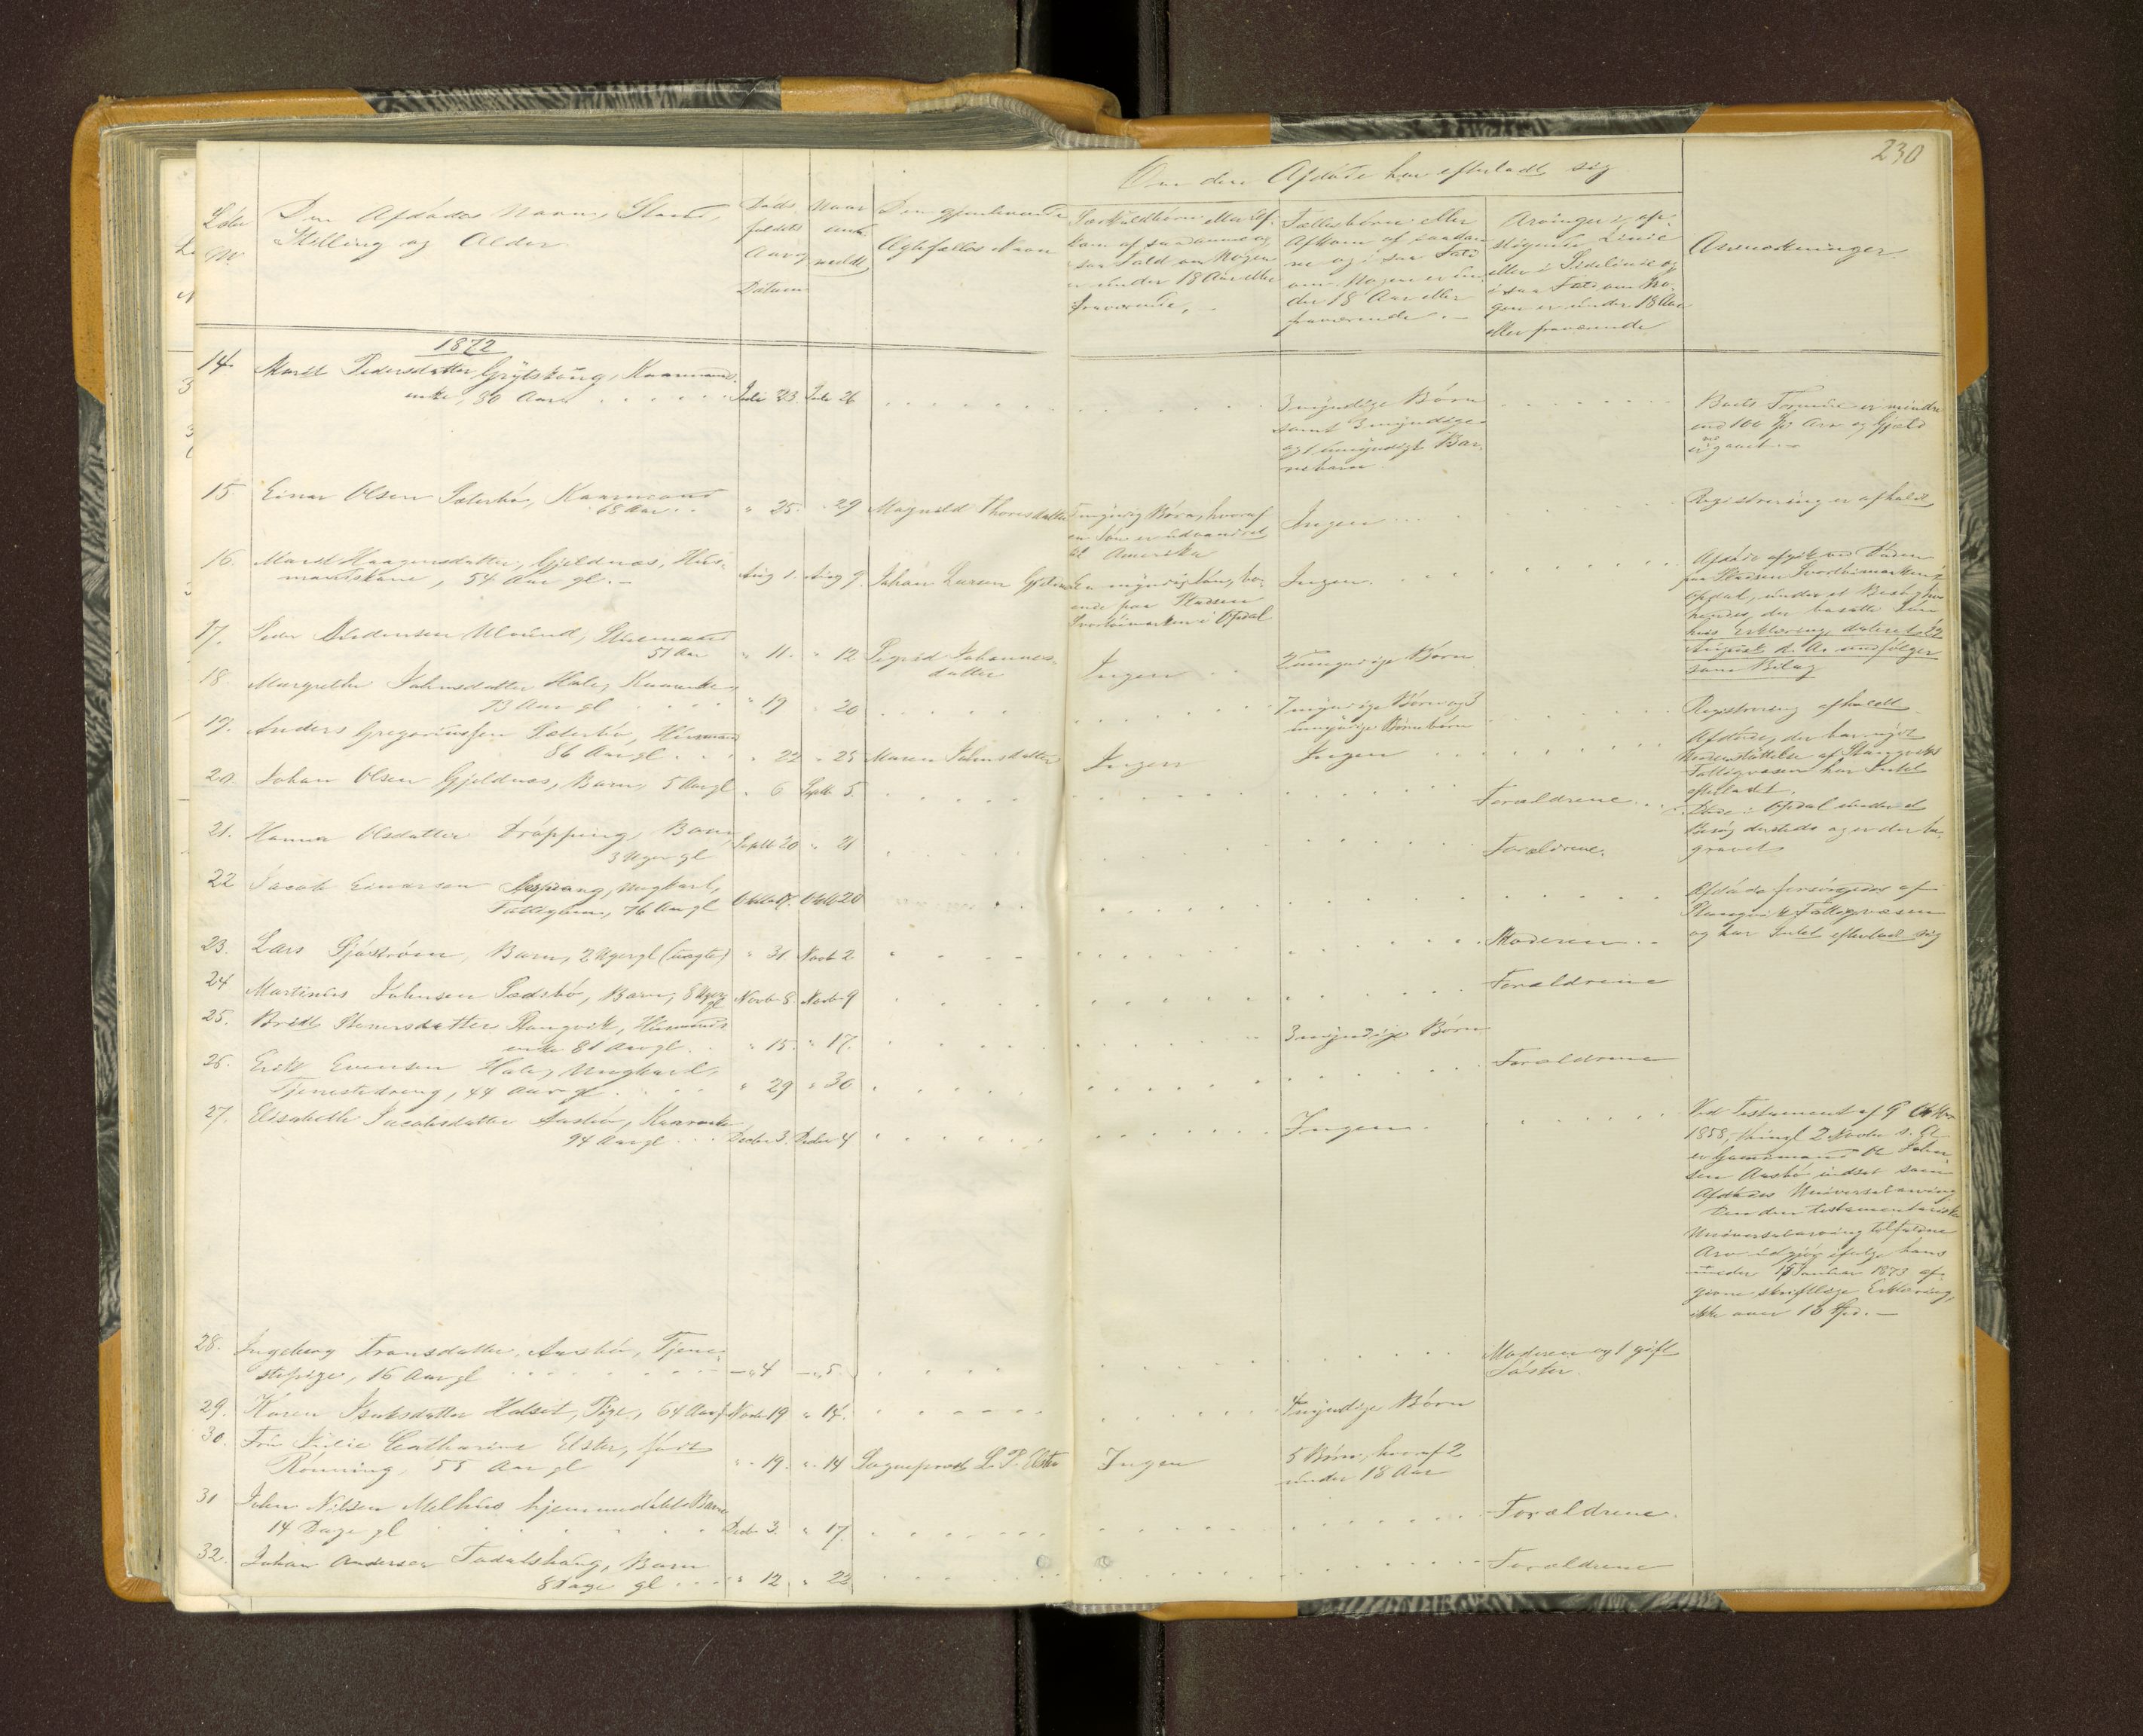 230
Om den Afdøde har efterladt sig
Løbe No.
Den Afdødes Navn, Stand,
Stilling og Alder
Døds-
faldets
Aar og
Datum
Naar
an-
meldt
Den gjenlevende
Ægtefælles Navn
Særkuldbørn eller Af-
kom af saadanne og i
saa Fald om Nogen
er under 18 Aar eller
fraværende.
Fællesbørn eller
Afkom af saadan-
ne og i saa Fald
om Nogen er un-
der 18 Aar eller
fraværende.
Arvinger i op-
stigende Linie
eller i Sidelinie og
i saa Fald om No-
gen er under 18 Aar
eller fraværende
Anmærkninger
1872
14. Marit Pedersdatter Grytskoug, Kaarmands-
enke, 80 Aar Juli 23. Juli 26
3 myndige Børn
samt 3 myndige
og 1 umyndigt Bar-
nebarn
Boets Formue er mindre
end 100 Spd. Arv og Gjæld
er gaaet
15. Einar Olsen Sæterbø, Kaarmand
68 Aar " 25. " 29 Magnild Thoresdatter
7 myndig Børn, hvoraf
en Søn er udvandret
til Amerika
Ingen
Registrering er afholdt
16. Marit Haagensdatter, Gjeldnæs, Hus-
mandskone, 54 Aar gl. Aug 1. Aug 9. Johan Larsen Gjeldnæs
En myndig Søn, bo-
ende paa Pladsen
Svartøimarken i Opdal
Ingen.
Afdøde afgik ved Døden
paa Pladsen Svartøimarken i
Opdal, under et Besøg hos
hendes der bosatte Søn
hvis Erklæring dateret 22
August d. A. medfølger
som Bilag
17. Peder Pedersen Ulvund, Stuemand
51 Aar " 11. " 12 Sigrid Johannes-
datter
Ingen
2 umyndige Børn
18. Margrethe Johnsdatter Hals, Kaarenke
73 Aar gl " 19 " 20
7 myndige Børn og 3
umyndige Børnebørn
Registrering afholdt
19. Anders Gregoriussen Sæterbø, Husmand
86 Aar gl " 22 " 25 Maren Johnsdatter
Ingen
Ingen
Afdøde, der har nydt
Understøttelse af Stangviks
Fattigvæsen har Intet
efterladt.
20. Johan Olsen Gjeldnæs, Barn, 5 Aar gl " 6 Septb 5.
Forældrene
Døde i Opdal under et
Besøg dersteds og er der be-
gravet
21. Hanna Olsdatter Drøpping Barn,
3 Uger gl Septb 20 " 21
Forældrene.
22 Jacob Einarsen Aaspang, Ungkarl,
Fattiglem, 76 Aar gl Oktb 20
Afdøde forsørgedes af
Stangvik Fattigvæsen
og har Intet efterladt sig
23. Lars Sjøstrøm, Barn, 2 Uger gl (uægte) " 31 Novb 2.
Moderen
24 Martinus Johnsen Sædsbø, Barn, 8 Uger
gl Novb 8. Novb 9
Forældrene
25. Brit Steinersdatter Stangvik, Husmands-
enke 81 Aar gl " 15. " 17.
3 myndige Børn
26. Erik Evensen Hals, Ungkarl,
Tjenestedreng, 44 Aar gl " 29 " 30
Forældrene
27. Elisabeth Jacobsdatter Aasbø, Kaarenke
94 Aar gl Decbr 3. Decbr 4
Ingen
Ved Testament af 9 Oktbr
1858, thingl. 2 Novbr s. A.
er Gaardmand Ole John-
sen Aasbø indsat som
Afdødes Universalarving
Den den testamentariske
Universalarving tilfaldne
Arv udgjør ifølge hans
under 15 Januar 1873 af-
givne skriftlige Erklæring,
ikke over 18 Spd.
28. Ingeborg Tronsdatter, Aasbø, Tjene-
stepige, 16 Aar gl " 4 " 5.
Moderen og 1 gift
Søster.
29. Karen Isaksdatter Halset, Pige, 64 Aar gl Novbr 19 " 14.
4 myndige Børn
30. Fru Julie Cathrine Elster, født
Rønning, 55 Aar gl " 19. " 14 Sogneprest L. P. Elster
Ingen
5 Børn, hvoraf 2
under 18 Aar
31 John Nilsen Melhus hjemmedøbt Barn
14 Dage gl Decbr 3. " 17.
Forældrene.
32. Johan Andersen Todalshaug, Barn
8 Dage gl " 12 " 22
Forældrene